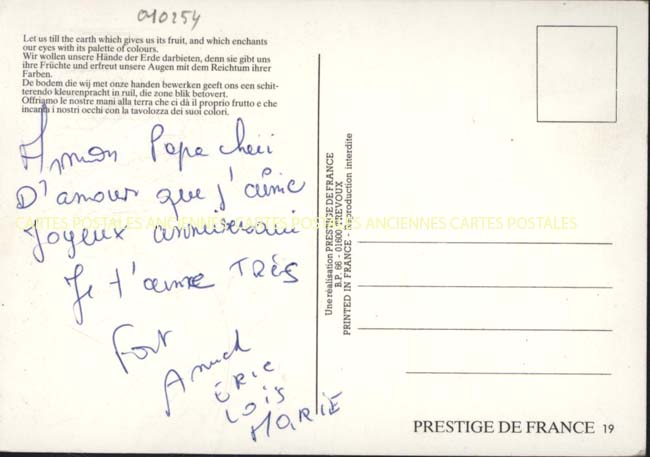 010254
Let us till the earth which gives us its fruit, and which enchants
our eyes with its palette of colours.
Wir wollen unsere Hände der Erde darbieten, denn sie gibt uns
ihre Früchte und erfreut unsere Augen mit dem Reichtum ihrer
Farben.
De bodem die wij met onze handen bewerken geeft ons een schit-
terend kleurenpracht in ruil, die zone blik betovert.
Offriamo le nostre mani alla terra che ci dà il proprio frutto e che
incanta i nostri occhi con la tavolozza dei suoi colori.
A mon Papa cheri
D'amour que j'aime
Joyeux anniversaire
Je t'aime TRÈS
Fort
ERIC
LOIS
MARIE
CARTES POSTALES ANCIENNES CARTES POSTALES ANCIENNES CARTES POSTALES
Une réalisation PRESTIGE DE FRANCE
B.P. 66 - 01600 TREVOUX
PRINTED IN FRANCE - Reproduction interdite
PRESTIGE DE FRANCE 19